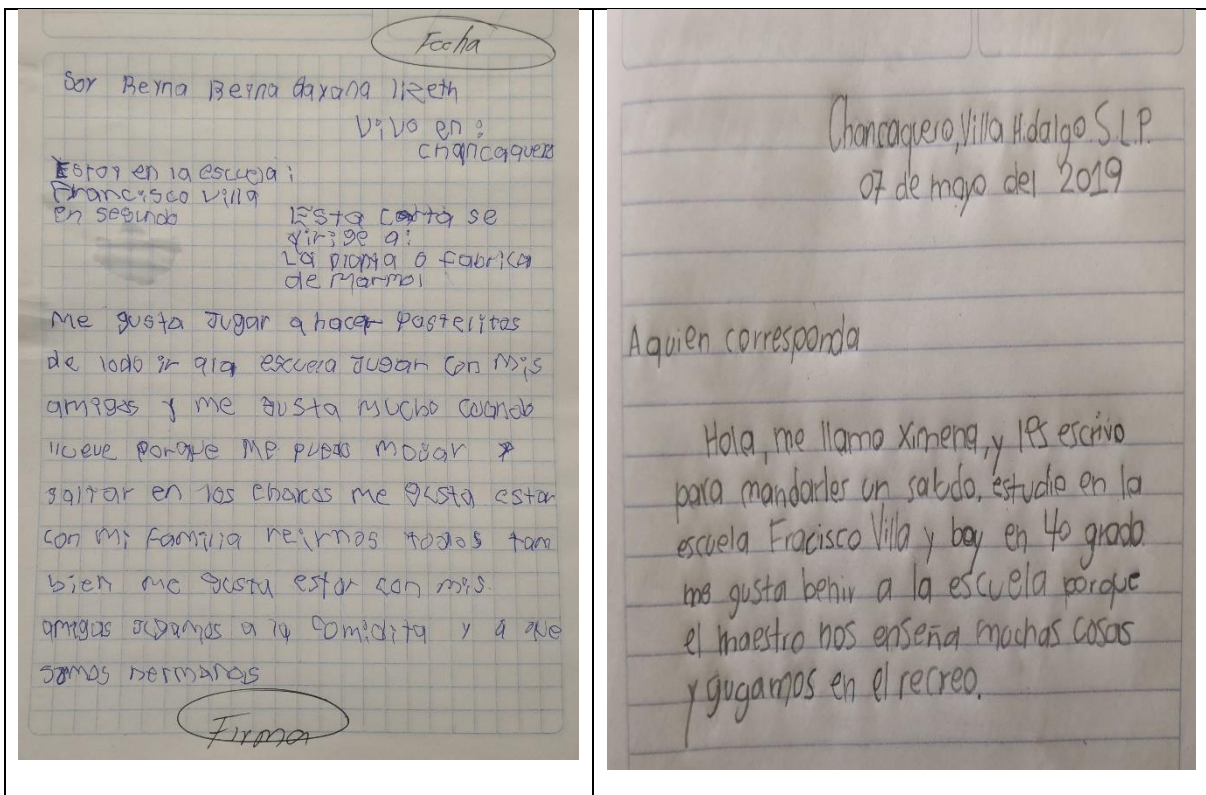 Fecha
Soy Reyna Reyna dayana lizeth
Vivo en:
chancaquero
Estoy en la escuela:
Francisco villa
en segundo
Esta carta se
dirige a:
La planta o fabrica
de Marmol
Me gusta Jugar a hacer Pastelitos
de lodo ir a la escuela Jugar con mis
amigos y me gusta mucho cuando
llueve porque me puedo mojar y
saltar en los charcos me gusta estar
con mi familia reirnos todos tam
bien me gusta estar con mis
amigas jugamos a la comidita y a que
somos hermanas
Firma
Chancaquero, Villa Hidalgo S.L.P.
07 de mayo del 2019
Aquien corresponda
Hola, me llamo Ximena, y les escrivo
para mandarles un saludo, estudio en la
escuela Fracisco Villa y boy en 4o grado
me gusta benir a la escuela porque
el maestro nos enseña muchas cosas
y gugamos en el recreo.